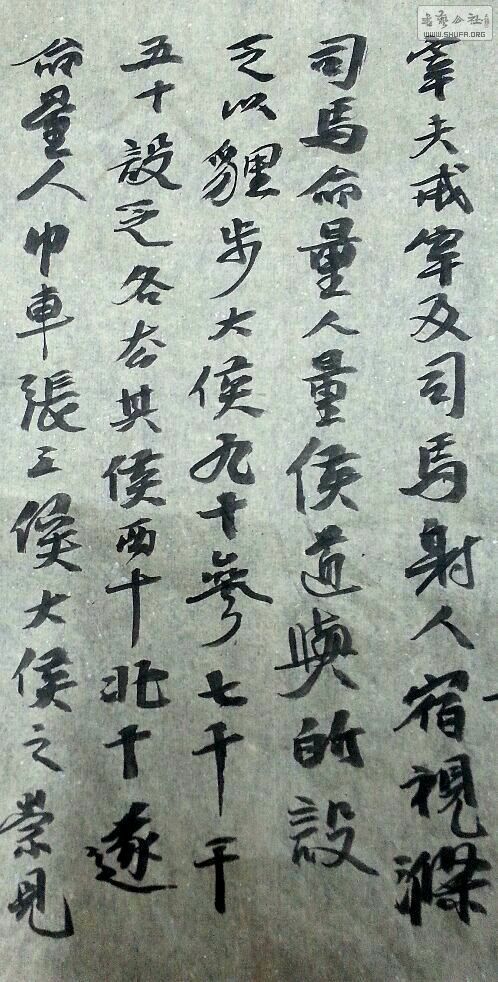 宰夫戒宰及司馬射人宿視滌
司馬命量人量侯道與所設
乏以貍步大侯九十參七十干
五十設乏各去其侯西十北十遂
命量人巾車張三侯大侯之崇見
书艺公社
WWW.SHUFA.ORG